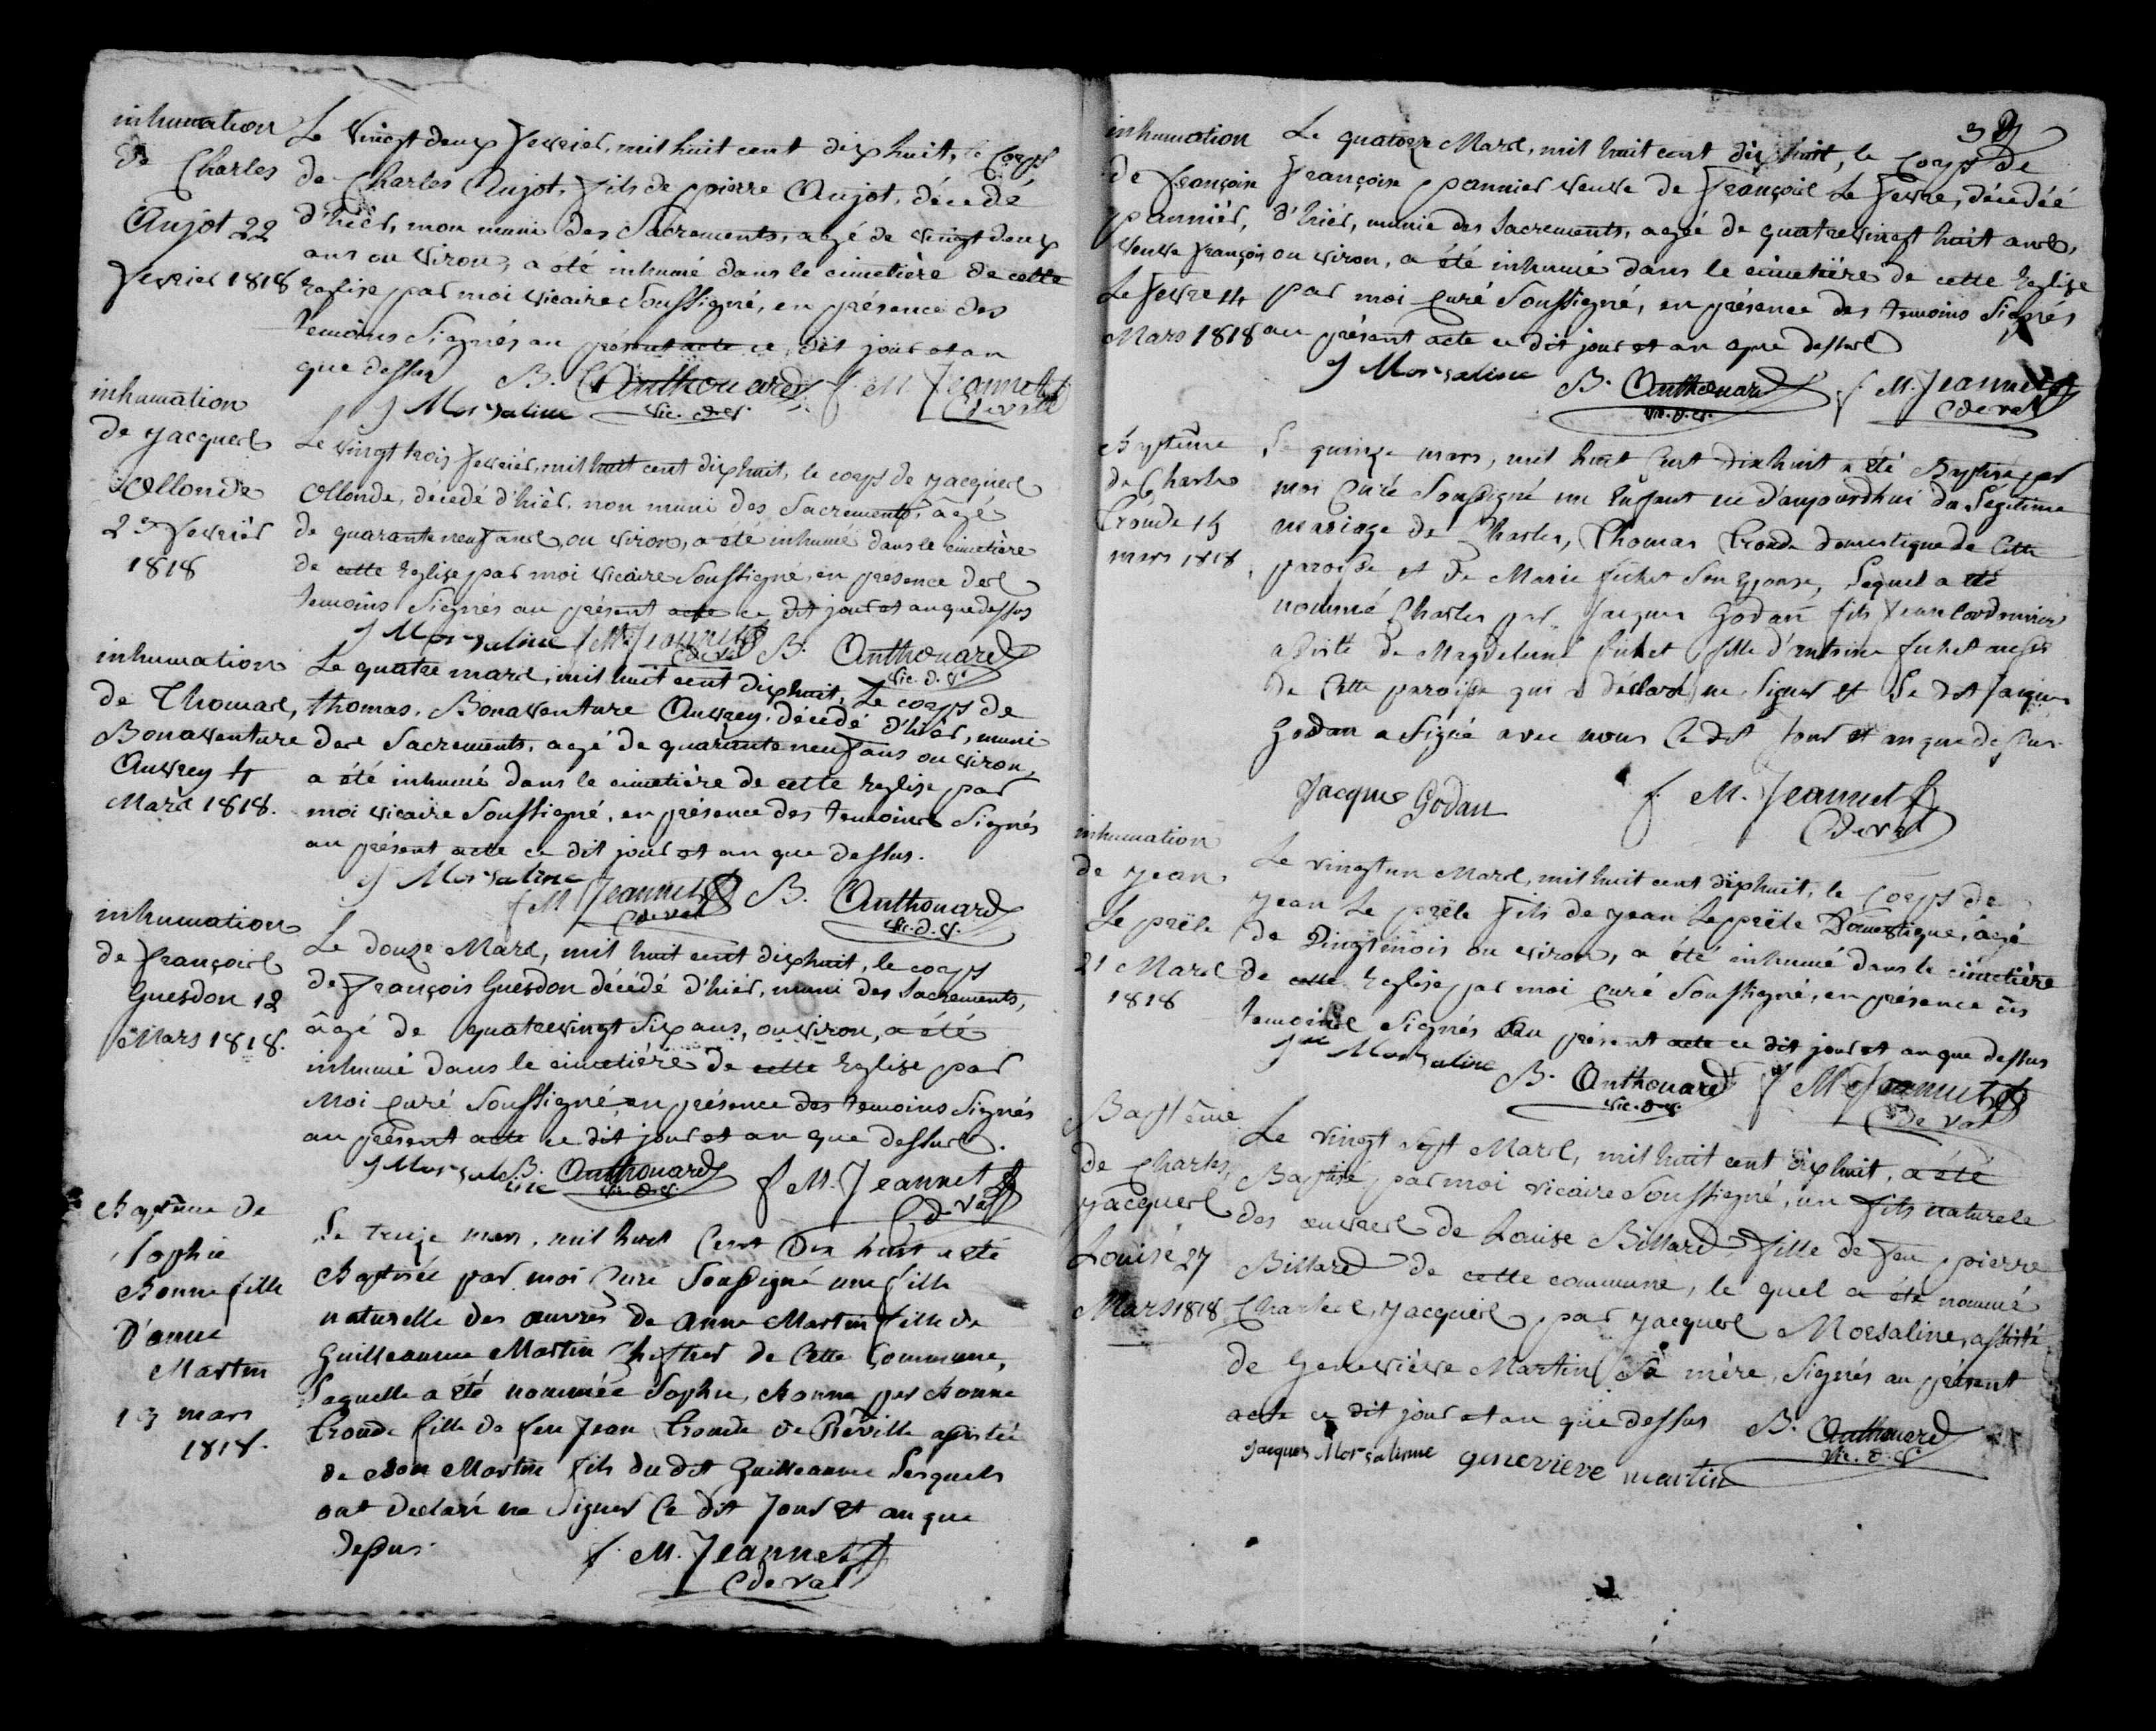 inhumation
de Charles
Aujot 22
fevrier 1818
Le vingt deux fevrier, mil huit cent dix huit, le corps
de Charles Aujot, fils de pierre Aujot, décedé
d'hier, non muni des Sacrements, agé de vingt deux
ans ou viron, a été inhumé dans le cimetière de cette
Eglise par moi vicaire Soussigné, en présence des
temoins Signés au présent acte ce dit jour et an
que dessus
B. Anthouard f. M. Jeannet
J Morsaline vic. d. v. C de val
inhumation
de jacques
Ollonde
23 fevrier
1818
Le vingt trois fevrier, mil huit cent dix huit, le corps de jacques
Ollonde, décedé d'hier, non muni des Sacrements, âgé
de quarante neuf ans, ou viron, a été inhumé dans le cimetière
de cette Eglise par moi vicaire Soussigné, en presence des
temoins Signés au présent acte ce dit jour et an que dessus
J Morsaline f M. Jeannet B. Anthouard
C de val vic. d. v.
inhumation
de Thomas,
Bonaventure
Auvrey 4
Mars 1818.
Le quatre mars, mil huit cent dix huit, Le corps de
thomas, Bonaventure Auvrey, décedé d'hier, muni
des Sacrements, agé de quarante neuf ans ou viron,
a été inhumé dans le cimetière de cette Eglise par
moi vicaire Soussigné, en présence des temoins Signés
au présent acte ce dit jour et an que dessus.
J Morsaline
f M Jeannet B. Anthouard
C de val vic. d. v.
inhumation
de françois
Guesdon 12
Mars 1818.
Le douze Mars, mil huit cent dix huit, le corps
de françois Guesdon décédé d'hier, muni des Sacrements,
âgé de quatrevingt six ans, ou viron, a été
inhumé dans le cimetière de cette Eglise par
Moi curé Soussigné en présence des temoins Signés
au présent acte ce dit jour et an que dessus.
J Morsaline B. Anthouard f M. Jeannet
vic. d. v. C de val
Baptême de
Sophie
Bonne fille
D'anne
Martin
13 mars
1818.
Le treize mars, mil huit Cent Dix huit a été
Baptisée par moi Curé Soussigné une fille
naturelle des œuvres de Anne Martin fille de
Guilleaume Martin de Cette Commune,
Laquelle a été nommée Sophie, Bonne par Bonne
Cronde fille de feu Jean Cronde de Réville assistée
de Martin fils du dit Guilleaume Lesquels
ont declaré ne Signer Ce dit Jour et an que
dessus.
f. M. Jeannet
C de val
3
inhumation
de françoise
pannier,
veuve françois
Le fevre 14
Mars 1818
Le quatorze Mars, mil huit cent dix huit, le Corps de
françoise pannier veuve de françois Le fevre, décédée
d'hier, munie des Sacrements, agée de quatrevingt huit ans,
ou viron, a été inhumé dans le cimetière de cette Eglise
par moi curé Soussigné, en présence des temoins Signés
au présent acte ce dit jour et an que dessus
J Morsaline B. Anthouard f M. Jeannet
vic. d. v. C de val
Baptême
de Charles
Cronde 15
mars 1818.
Le quinze mars, mil huit Cent dix huit a été Baptisé par
moi Curé Soussigné un Enfant né d'aujourdhui du Légitime
mariage de Charles, Thomas Cronde domestique de Cette
paroisse et de Marie fichet Son Epouse, Lequel a été
nommé Charles par Jacques Godan fils Jean Cordonnier
assisté de Magdeleine fichet fille d'antoine fichet aussi
de Cette paroisse qui a déclaré ne Signer et Le dit Jacques
Godan a Signé avec nous Ce dit Jour et an que dessus.
Jacques Godan f. M. Jeannet
C de val
inhumation
de jean
Le prêle
21 Mars
1818
Le vingt un Mars, mil huit cent dix huit, le Corps de
jean Le prêle fils de jean Le prêle Domestique, âgé
de vingt mois ou viron, a été inhumé dans le cimetière
de cette Eglise par moi curé Soussigné, en présence des
temoins Signés au présent acte ce dit jour et an que dessus
J Morsaline
B. Anthouard f M Jeannet
vic. d. v. C de val
Baptême
de Charles,
jacques
Louise 27
Mars 1818
Le vingt Sept Mars, mil huit cent dix huit, a été
Baptisé par moi vicaire Soussigné, un fils naturele
des œuvres de Louise Billard fille de feu pierre
Billard de cette commune, le quel a été nommé
Charles, jacques par jacques Morsaline, assisté
de Genevieve Martin Sa mère, Signés au présent
acte ce dit jour et an que dessus B. Anthouard
vic. d. v.
Jacques Morsalinne genevieve martin